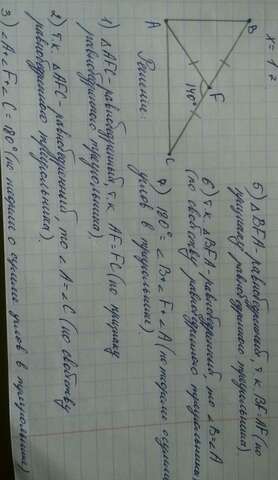 x = 1 ?
A
B
F
140°
C
Решение:
1) △AFC - равнобедренный, т.к. AF=FC (по признаку
равнобедренного треугольника).
2) т.к. △AFC - равнобедренный, то ∠A=∠C (по свойству
равнобедренного треугольника).
3) ∠A+∠F+∠C=180° (по теореме о сумме углов в треугольнике)
5) △BFA - равнобедренный, т.к. BF=AF (по
признаку равнобедренного треугольника).
6) т.к. △BFA - равнобедренный, то ∠B=∠A
(по свойству равнобедренного треугольника)
7) 180° = ∠B+∠F+∠A (по теореме о сумме
углов в треугольнике)